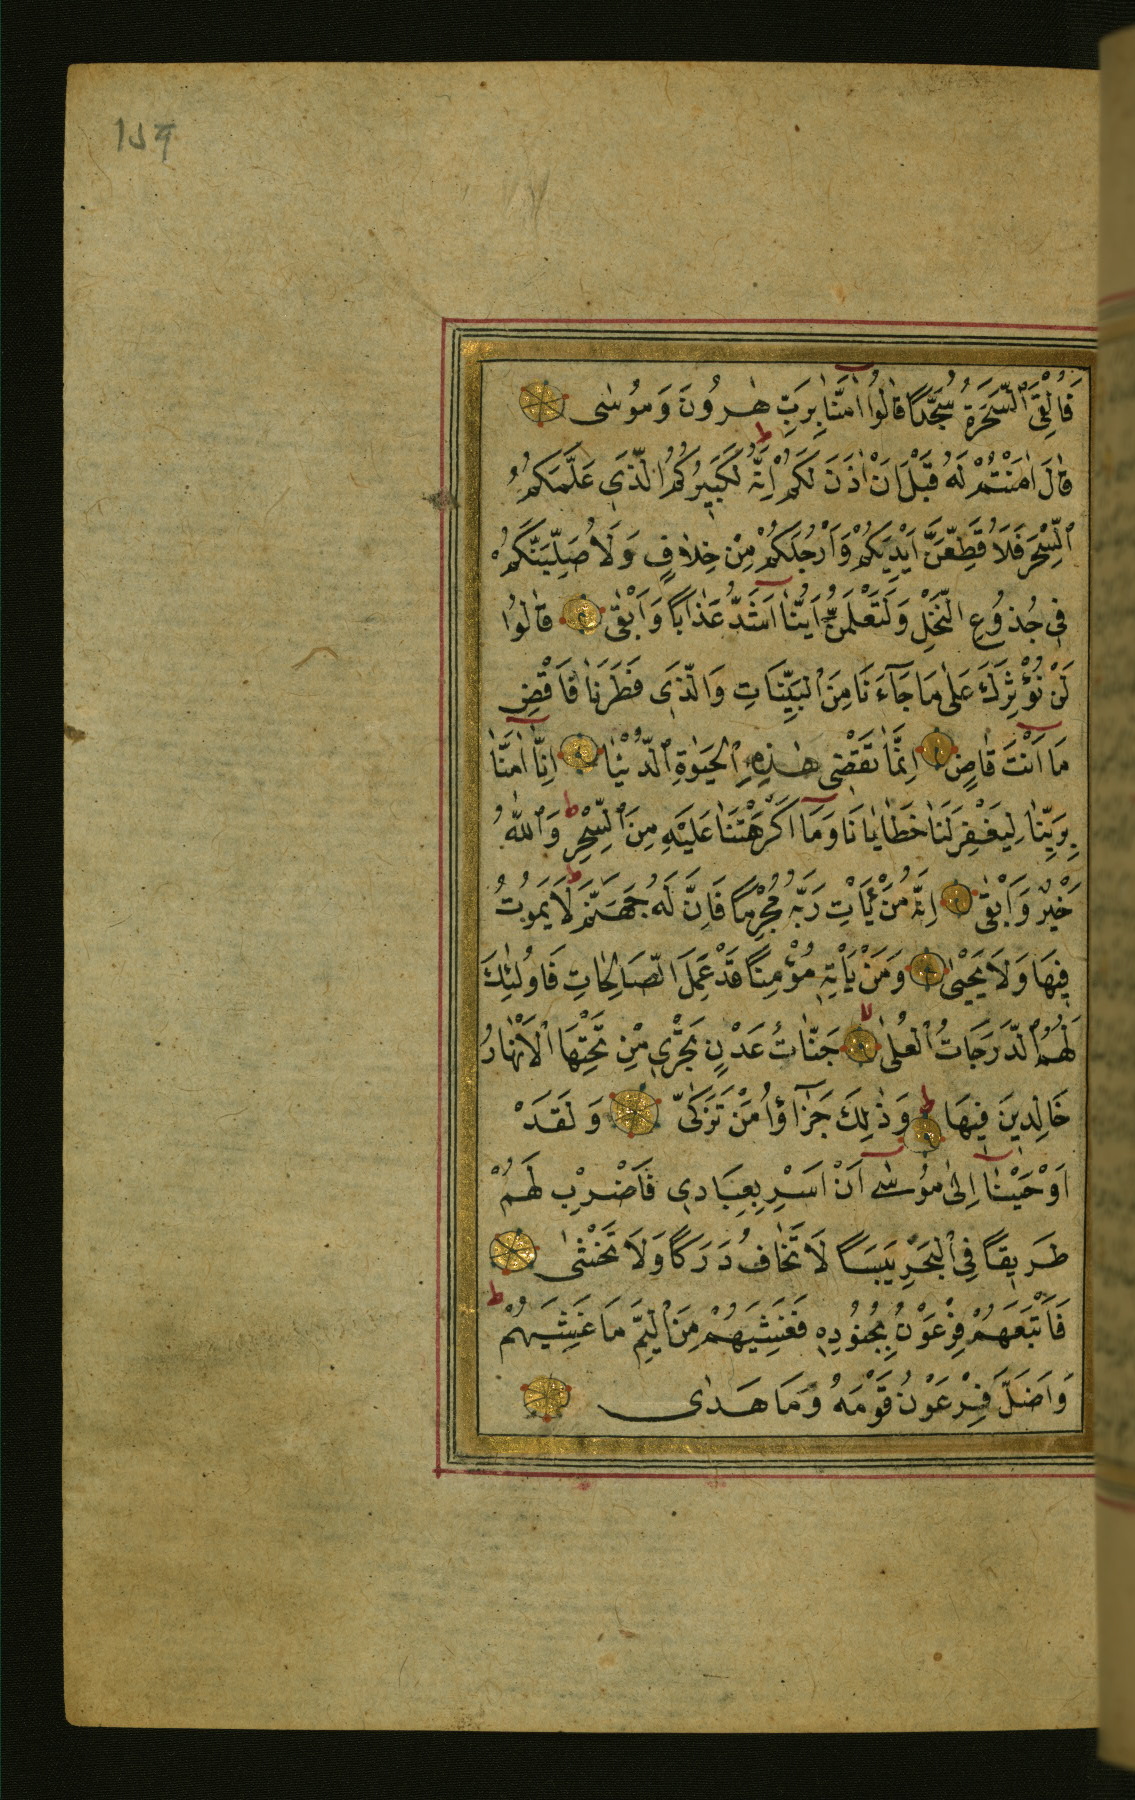 فَاُلْقِیَ السَّحَرَةُ سُجَّدًا قَالُوا اٰمَنَّا بِرَبِّ هٰرُونَ وَمُوسٰى
قَالَ اٰمَنْتُمْ لَهُ قَبْلَ اَنْ اٰذَنَ لَكُمْ اِنَّهُ لَكَبِيرُكُمُ الَّذِي عَلَّمَكُمُ
السِّحْرَ فَلَاُقَطِّعَنَّ اَيْدِيَكُمْ وَاَرْجُلَكُمْ مِنْ خِلَافٍ وَلَاُصَلِّبَنَّكُمْ
فِي جُذُوعِ النَّخْلِ وَلَتَعْلَمُنَّ اَيُّنَا اَشَدُّ عَذَابًا وَاَبْقٰى قَالُوا
لَنْ نُؤْثِرَكَ عَلٰى مَا جَاءَنَا مِنَ الْبَيِّنَاتِ وَالَّذِي فَطَرَنَا فَاقْضِ
مَا اَنْتَ قَاضٍ اِنَّمَا تَقْضِي هٰذِهِ الْحَيٰوةَ الدُّنْيَا اِنَّا اٰمَنَّا
بِرَبِّنَا لِيَغْفِرَ لَنَا خَطَايَانَا وَمَا اَكْرَهْتَنَا عَلَيْهِ مِنَ السِّحْرِ ط وَاللّٰهُ
خَيْرٌ وَاَبْقٰى اِنَّهُ مَنْ يَأْتِ رَبَّهُ مُجْرِمًا فَاِنَّ لَهُ جَهَنَّمَ ط لَا يَمُوتُ
فِيهَا وَلَا يَحْيٰى وَمَنْ يَأْتِهِ مُؤْمِنًا قَدْ عَمِلَ الصَّالِحَاتِ فَاُولٰئِكَ
لَهُمُ الدَّرَجَاتُ الْعُلٰى لا جَنَّاتُ عَدْنٍ تَجْرِي مِنْ تَحْتِهَا الْاَنْهَارُ
خَالِدِينَ فِيهَا ط وَذٰلِكَ جَزَاؤُا مَنْ تَزَكّٰى وَلَقَدْ
اَوْحَيْنَا اِلٰى مُوسٰى اَنْ اَسْرِ بِعِبَادِي فَاضْرِبْ لَهُمْ
طَرِيقًا فِي الْبَحْرِ يَبَسًا لَا تَخَافُ دَرَكًا وَلَا تَخْشٰى
فَاَتْبَعَهُمْ فِرْعَوْنُ بِجُنُودِهِ فَغَشِيَهُمْ مِنَ الْيَمِّ مَا غَشِيَهُمْ ط
وَاَضَلَّ فِرْعَوْنُ قَوْمَهُ وَمَا هَدٰى